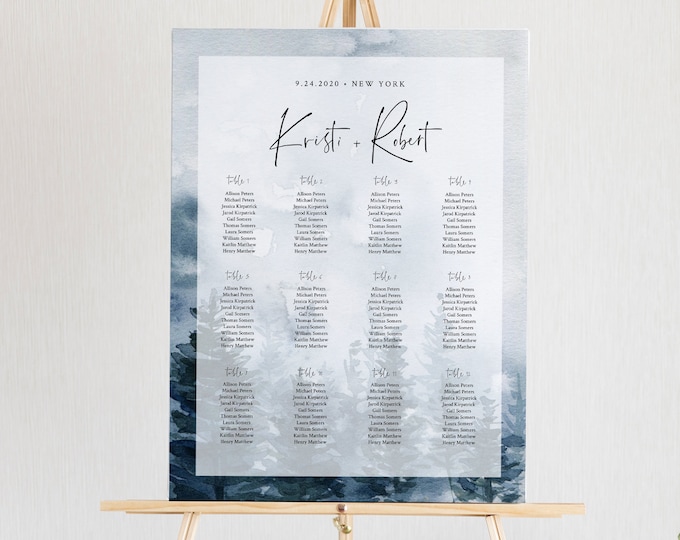 9.24.2020 • NEW YORK
Kristi + Robert
table 1
Allison Peters
Michael Peters
Jessica Kirpatrick
Jarod Kirpatrick
Gail Somers
Thomas Somers
Laura Somers
William Somers
Kaitlin Matthew
Henry Matthew
table 2
Allison Peters
Michael Peters
Jessica Kirpatrick
Jarod Kirpatrick
Gail Somers
Thomas Somers
Laura Somers
William Somers
Kaitlin Matthew
Henry Matthew
table 3
Allison Peters
Michael Peters
Jessica Kirpatrick
Jarod Kirpatrick
Gail Somers
Thomas Somers
Laura Somers
William Somers
Kaitlin Matthew
Henry Matthew
table 4
Allison Peters
Michael Peters
Jessica Kirpatrick
Jarod Kirpatrick
Gail Somers
Thomas Somers
Laura Somers
William Somers
Kaitlin Matthew
Henry Matthew
table 5
Allison Peters
Michael Peters
Jessica Kirpatrick
Jarod Kirpatrick
Gail Somers
Thomas Somers
Laura Somers
William Somers
Kaitlin Matthew
Henry Matthew
table 6
Allison Peters
Michael Peters
Jessica Kirpatrick
Jarod Kirpatrick
Gail Somers
Thomas Somers
Laura Somers
William Somers
Kaitlin Matthew
Henry Matthew
table 7
Allison Peters
Michael Peters
Jessica Kirpatrick
Jarod Kirpatrick
Gail Somers
Thomas Somers
Laura Somers
William Somers
Kaitlin Matthew
Henry Matthew
table 8
Allison Peters
Michael Peters
Jessica Kirpatrick
Jarod Kirpatrick
Gail Somers
Thomas Somers
Laura Somers
William Somers
Kaitlin Matthew
Henry Matthew
table 9
Allison Peters
Michael Peters
Jessica Kirpatrick
Jarod Kirpatrick
Gail Somers
Thomas Somers
Laura Somers
William Somers
Kaitlin Matthew
Henry Matthew
table 10
Allison Peters
Michael Peters
Jessica Kirpatrick
Jarod Kirpatrick
Gail Somers
Thomas Somers
Laura Somers
William Somers
Kaitlin Matthew
Henry Matthew
table 11
Allison Peters
Michael Peters
Jessica Kirpatrick
Jarod Kirpatrick
Gail Somers
Thomas Somers
Laura Somers
William Somers
Kaitlin Matthew
Henry Matthew
table 12
Allison Peters
Michael Peters
Jessica Kirpatrick
Jarod Kirpatrick
Gail Somers
Thomas Somers
Laura Somers
William Somers
Kaitlin Matthew
Henry Matthew